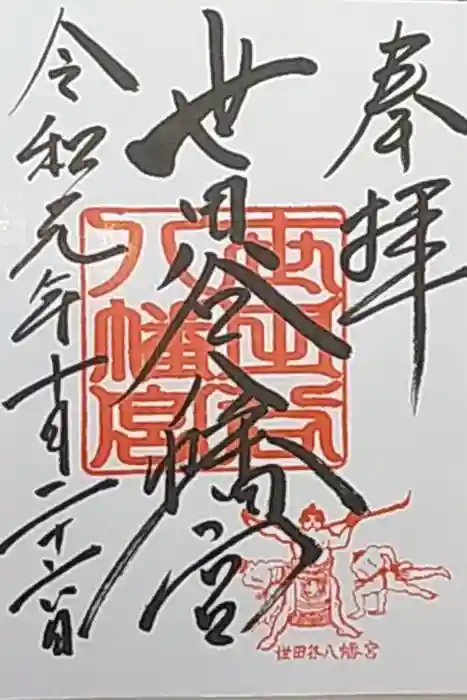 奉拝
世田谷八幡宮
令和元年十月二十六日
世田谷
八幡宮
世田谷八幡宮